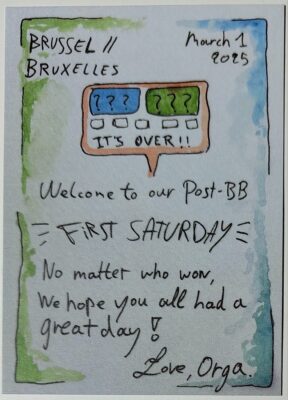 BRUSSEL //
BRUXELLES
March 1
2025
??? ???
IT'S OVER!!
Welcome to our Post-BB
FiRST SATURDAY
No matter who won,
We hope you all had a
great day!
Love, Orga.